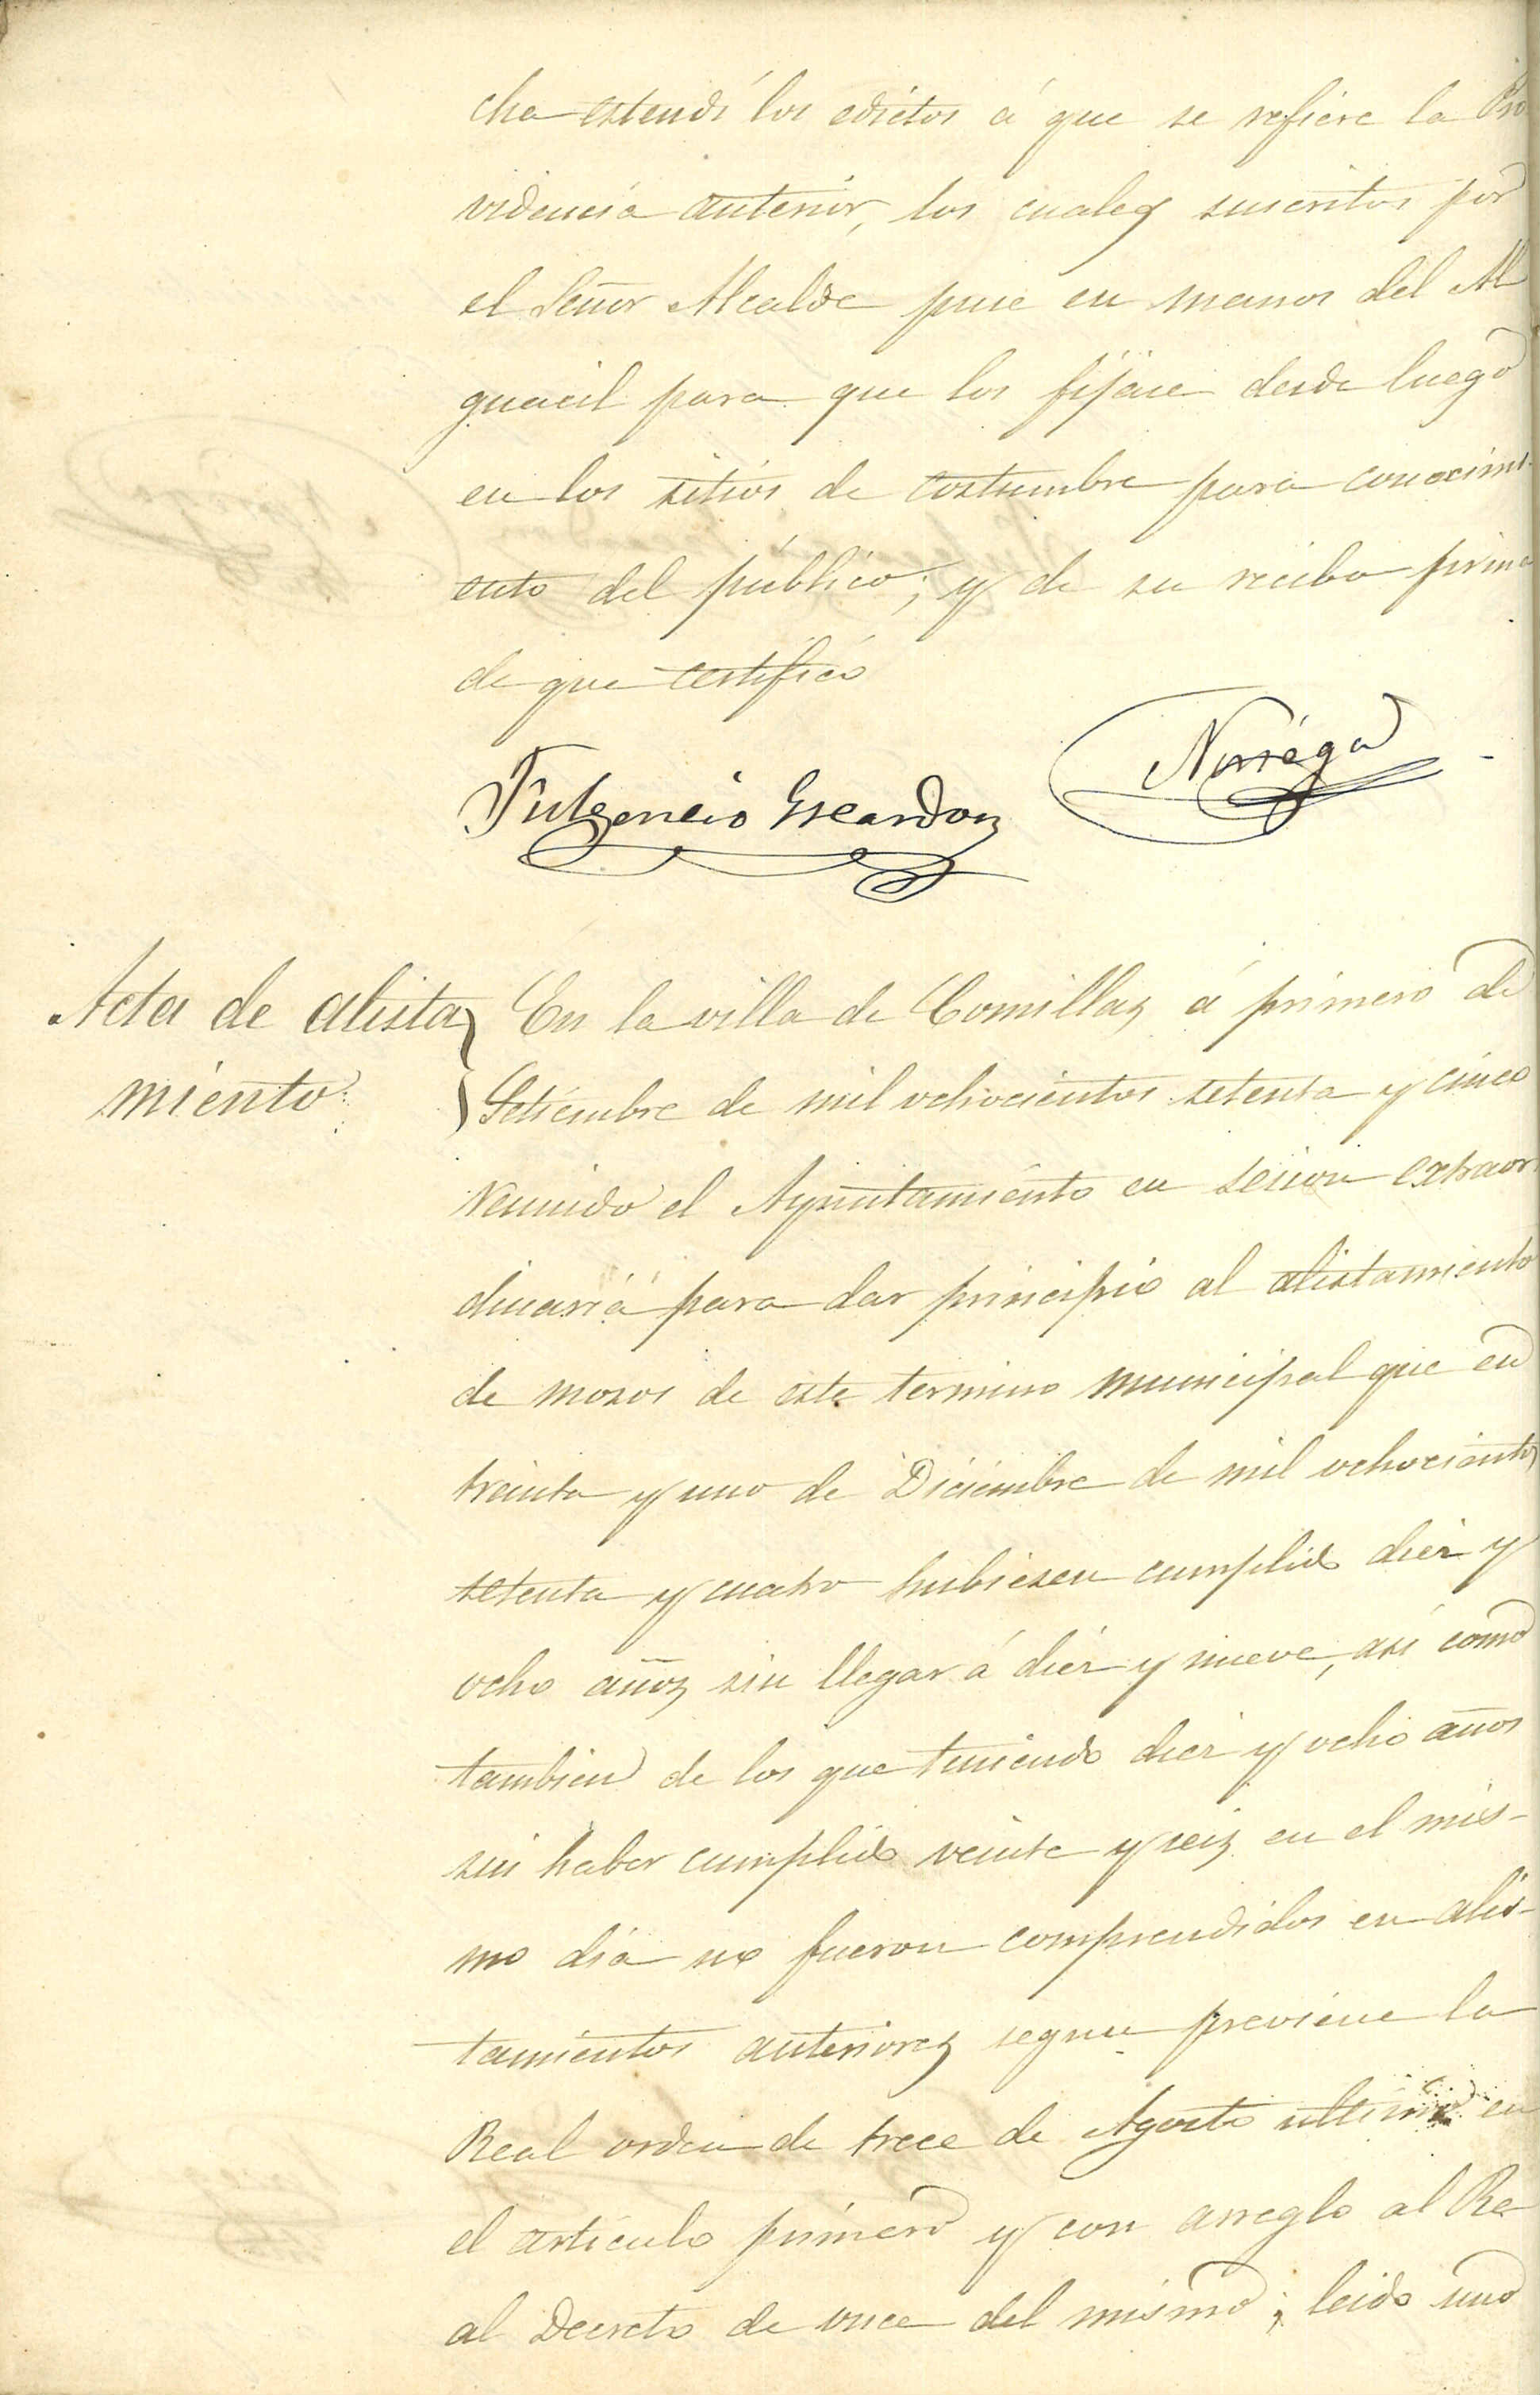 cha estendí los edictos á que se refiere la Pro
videncia anterior, los cuales suscritos por
el Señor Alcalde puse en manos del Al
guacil para que los fijase desde luego
en los sitios de costumbre para conocimi
ento del público; y de su recibo firma
de que certifico
Noriega
Fulgencio Escandon
Acta de alista
miento.
En la villa de Comillas á primero de
Setiembre de mil ochocientos setenta y cinco
Reunido el Ayuntamiento en sesion extraor
dinaria para dar principio al alistamiento
de mozos de este termino municipal que en
treinta y uno de Diciembre de mil ochocientos
setenta y cuatro hubiesen cumplido diez y
ocho años sin llegar á diez y nueve, así como
tambien de los que teniendo diez y ocho años
sin haber cumplido veinte y seis en el mis-
mo dia no fueron comprendidos en alis-
tamientos anteriores segun previene la
Real orden de trece de Agosto ultimo en
el articulo primero y con arreglo al Re
al Decreto de once del mismo; leido uno